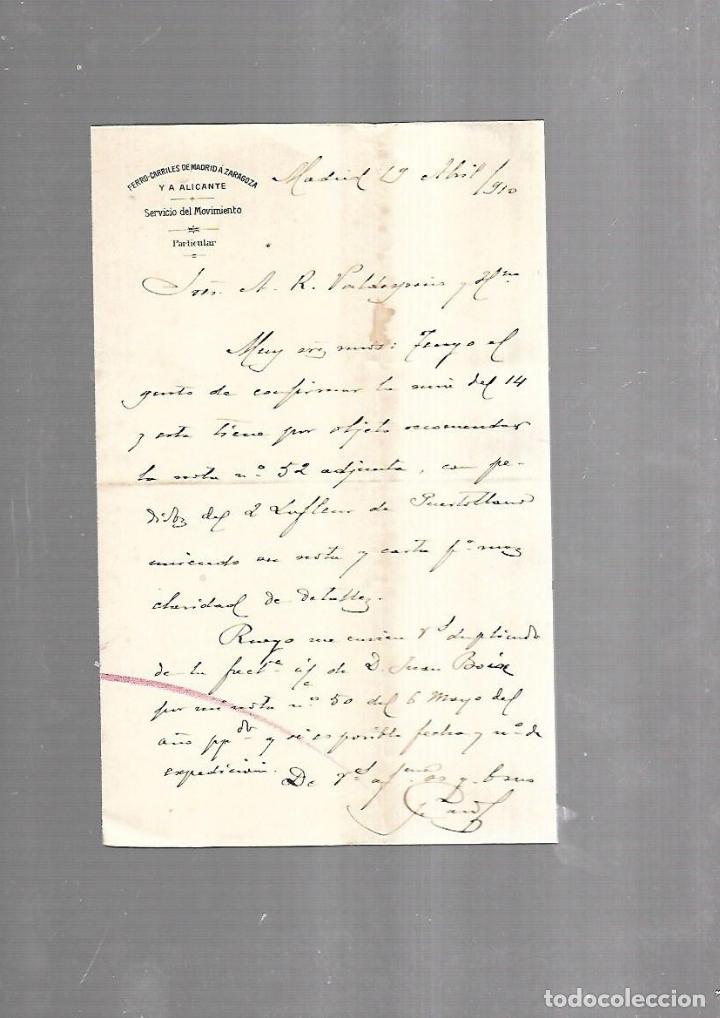 FERRO-CARRILES DE MADRID Á ZARAGOZA
Y A ALICANTE
Servicio del Movimiento
Particular
Madrid 19 Abril /910
A. R. Valdespino y Hno
Muy mios: Tengo el
gusto de confirmar la mia del 14
y esta tiene por objeto recomendar
la nota nº 52 adjunta, con pe-
del 2 Lafleur de Puertollano
uniendo su nota y carta pª mas
claridad de detalles.
Ruego me envien duplicado
de la de D. Juan Boix
por mi nota nº 50 del 6 Mayo del
año ppdo y si es posible fecha y nº de
expedicion.
De Vds q. b. s. m.
todocoleccion.net